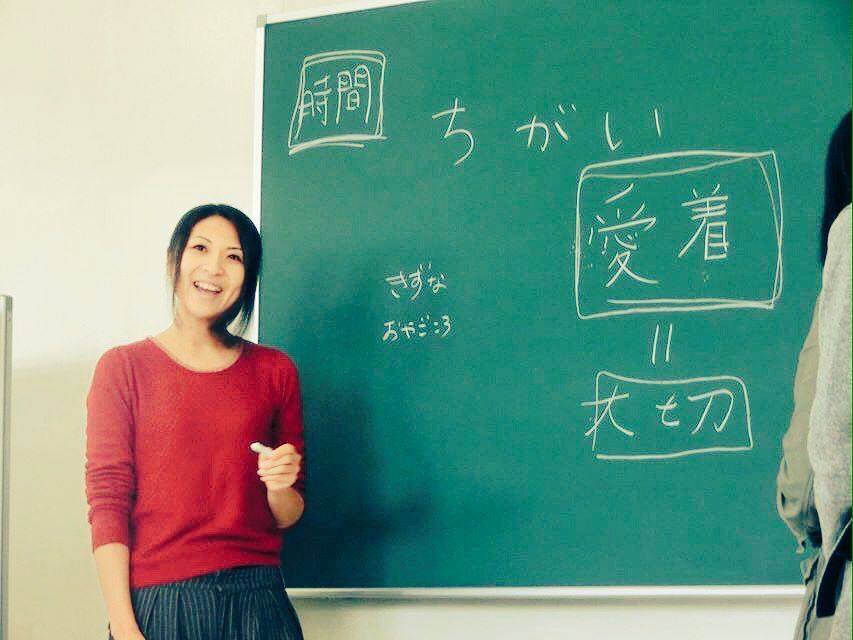 時間
ちがい
愛着
きずな
おやごころ
||
大切